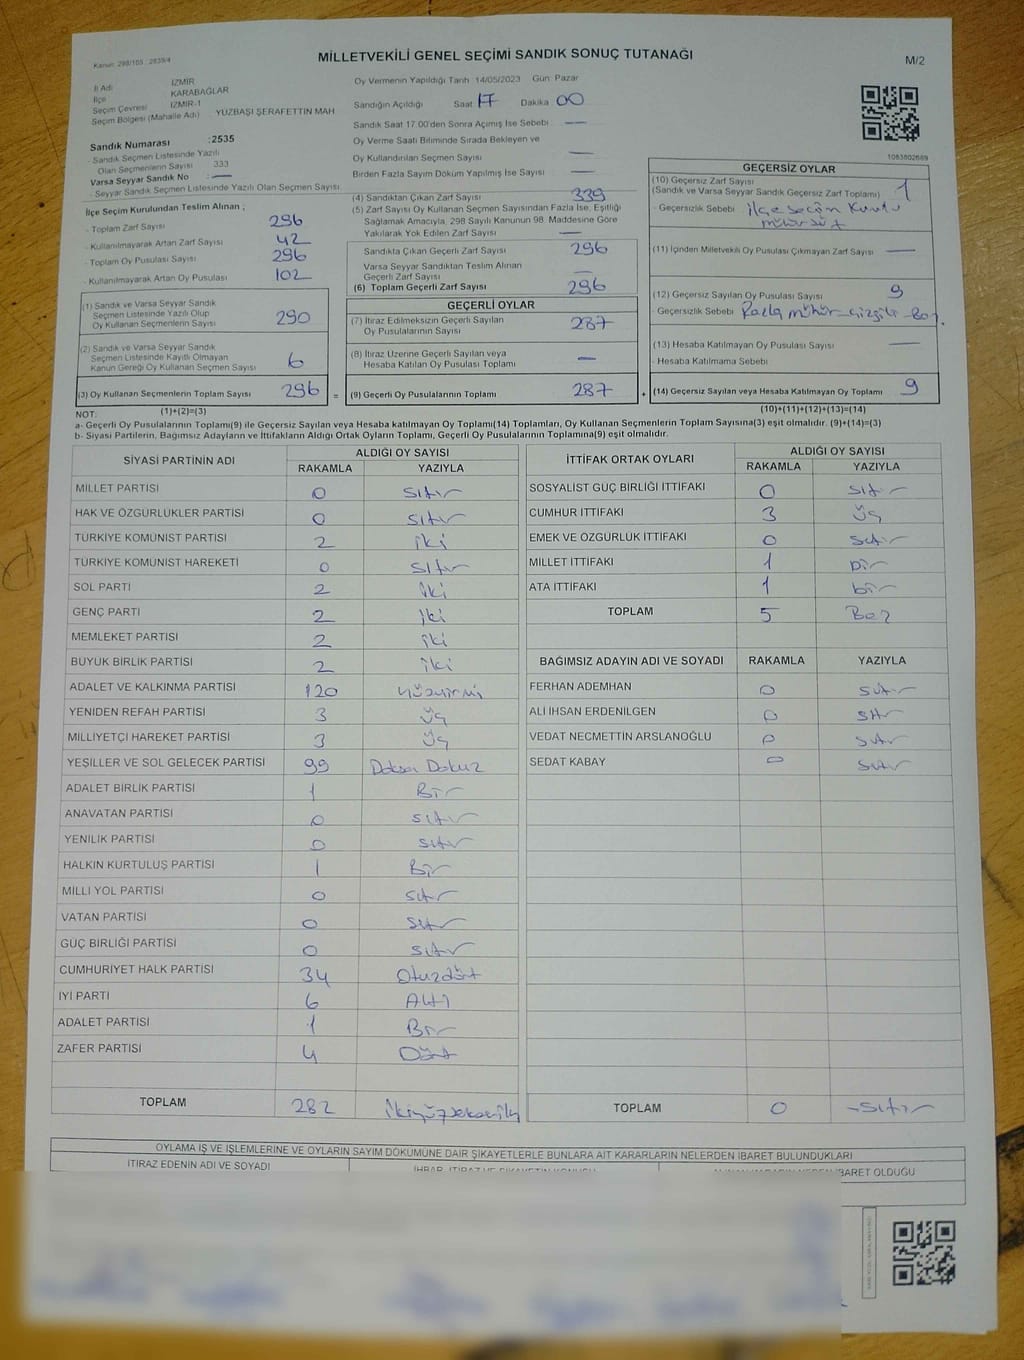 Kanun: 298/105 : 2839/4
MİLLETVEKİLİ GENEL SEÇİMİ SANDIK SONUÇ TUTANAĞI
M/2
İl Adı İZMİR
İlçe KARABAĞLAR
Seçim Çevresi İZMİR-1
Seçim Bölgesi (Mahalle Adı) YÜZBAŞI ŞERAFETTİN MAH
Sandık Numarası :2535
- Sandık Seçmen Listesinde Yazılı
Olan Seçmenlerin Sayısı 333
Varsa Seyyar Sandık No —
- Seyyar Sandık Seçmen Listesinde Yazılı Olan Seçmen Sayısı
İlçe Seçim Kurulundan Teslim Alınan ;
- Toplam Zarf Sayısı 296
- Kullanılmayarak Artan Zarf Sayısı 42
- Toplam Oy Pusulası Sayısı 296
- Kullanılmayarak Artan Oy Pusulası 102
(1) Sandık ve Varsa Seyyar Sandık
Seçmen Listesinde Yazılı Olup
Oy Kullanan Seçmenlerin Sayısı 290
(2) Sandık ve Varsa Seyyar Sandık
Seçmen Listesinde Kayıtlı Olmayan
Kanun Gereği Oy Kullanan Seçmen Sayısı 6
(3) Oy Kullanan Seçmenlerin Toplam Sayısı 296 =
(1)+(2)=(3)
Oy Vermenin Yapıldığı Tarih :14/05/2023 Gün: Pazar
Sandığın Açıldığı Saat 17 Dakika 00
Sandık Saat 17.00'den Sonra Açımış İse Sebebi —
Oy Verme Saati Bitiminde Sırada Bekleyen ve
Oy Kullandırılan Seçmen Sayısı —
Birden Fazla Sayım Döküm Yapılmış İse Sayısı —
(4) Sandıktan Çıkan Zarf Sayısı 339
(5) Zarf Sayısı Oy Kullanan Seçmen Sayısından Fazla İse, Eşitliği
Sağlamak Amacıyla, 298 Sayılı Kanunun 98. Maddesine Göre
Yakılarak Yok Edilen Zarf Sayısı —
Sandıkta Çıkan Geçerli Zarf Sayısı 296
Varsa Seyyar Sandıktan Teslim Alınan
Geçerli Zarf Sayısı —
(6) Toplam Geçerli Zarf Sayısı 296
GEÇERLİ OYLAR
(7) İtiraz Edilmeksizin Geçerli Sayılan
Oy Pusulalarının Sayısı 287
(8) İtiraz Üzerine Geçerli Sayılan veya
Hesaba Katılan Oy Pusulası Toplamı —
(9) Geçerli Oy Pusulalarının Toplamı 287 +
1083802689
GEÇERSİZ OYLAR
(10) Geçersiz Zarf Sayısı
(Sandık ve Varsa Seyyar Sandık Geçersiz Zarf Toplamı) 1
- Geçersizlik Sebebi ilçe seçim Kurulu
(11) İçinden Milletvekili Oy Pusulası Çıkmayan Zarf Sayısı —
(12) Geçersiz Sayılan Oy Pusulası Sayısı 9
- Geçersizlik Sebebi Fazla mühür-çizgili-Boş.
(13) Hesaba Katılmayan Oy Pusulası Sayısı —
- Hesaba Katılmama Sebebi
(14) Geçersiz Sayılan veya Hesaba Katılmayan Oy Toplamı 9
(10)+(11)+(12)+(13)=(14)
NOT:
a- Geçerli Oy Pusulalarının Toplamı(9) ile Geçersiz Sayılan veya Hesaba katılmayan Oy Toplamı(14) Toplamları, Oy Kullanan Seçmenlerin Toplam Sayısına(3) eşit olmalıdır. (9)+(14)=(3)
b- Siyasi Partilerin, Bağımsız Adayların ve İttifakların Aldığı Ortak Oyların Toplamı, Geçerli Oy Pusulalarının Toplamına(9) eşit olmalıdır.
SİYASİ PARTİNİN ADI ALDIĞI OY SAYISI
RAKAMLA YAZIYLA
MİLLET PARTİSİ 0 sıfır
HAK VE ÖZGÜRLÜKLER PARTİSİ 0 sıfır
TÜRKİYE KOMÜNİST PARTİSİ 2 iki
TÜRKİYE KOMÜNİST HAREKETİ 0 sıfır
SOL PARTİ 2 iki
GENÇ PARTİ 2 iki
MEMLEKET PARTİSİ 2 iki
BÜYÜK BİRLİK PARTİSİ 2 iki
ADALET VE KALKINMA PARTİSİ 120 yüzyirmi
YENİDEN REFAH PARTİSİ 3 üç
MİLLİYETÇİ HAREKET PARTİSİ 3 üç
YEŞİLLER VE SOL GELECEK PARTİSİ 99 Doksan Dokuz
ADALET BİRLİK PARTİSİ 1 Bir
ANAVATAN PARTİSİ 0 sıfır
YENİLİK PARTİSİ 0 sıfır
HALKIN KURTULUŞ PARTİSİ 1 Bir
MİLLİ YOL PARTİSİ 0 sıfır
VATAN PARTİSİ 0 sıfır
GÜÇ BİRLİĞİ PARTİSİ 0 sıfır
CUMHURİYET HALK PARTİSİ 34 Otuzdört
İYİ PARTİ 6 Altı
ADALET PARTİSİ 1 Bir
ZAFER PARTİSİ 4 Dört
TOPLAM 282 ikiyüzsekseniki
İTTİFAK ORTAK OYLARI ALDIĞI OY SAYISI
RAKAMLA YAZIYLA
SOSYALİST GÜÇ BİRLİĞİ İTTİFAKI 0 sıfır
CUMHUR İTTİFAKI 3 üç
EMEK VE ÖZGÜRLÜK İTTİFAKI 0 sıfır
MİLLET İTTİFAKI 1 bir
ATA İTTİFAKI 1 bir
TOPLAM 5 Beş
BAĞIMSIZ ADAYIN ADI VE SOYADI RAKAMLA YAZIYLA
FERHAN ADEMHAN 0 sıfır
ALİ İHSAN ERDENİLGEN 0 sıfır
VEDAT NECMETTİN ARSLANOĞLU 0 sıfır
SEDAT KABAY 0 sıfır
TOPLAM 0 -sıfır
OYLAMA İŞ VE İŞLEMLERİNE VE OYLARIN SAYIM DÖKÜMÜNE DAİR ŞİKAYETLERLE BUNLARA AİT KARARLARIN NELERDEN İBARET BULUNDUKLARI
İTİRAZ EDENİN ADI VE SOYADI İHBAR, İTİRAZ VE ŞİKAYETİN KONUSU İBARET OLDUĞU